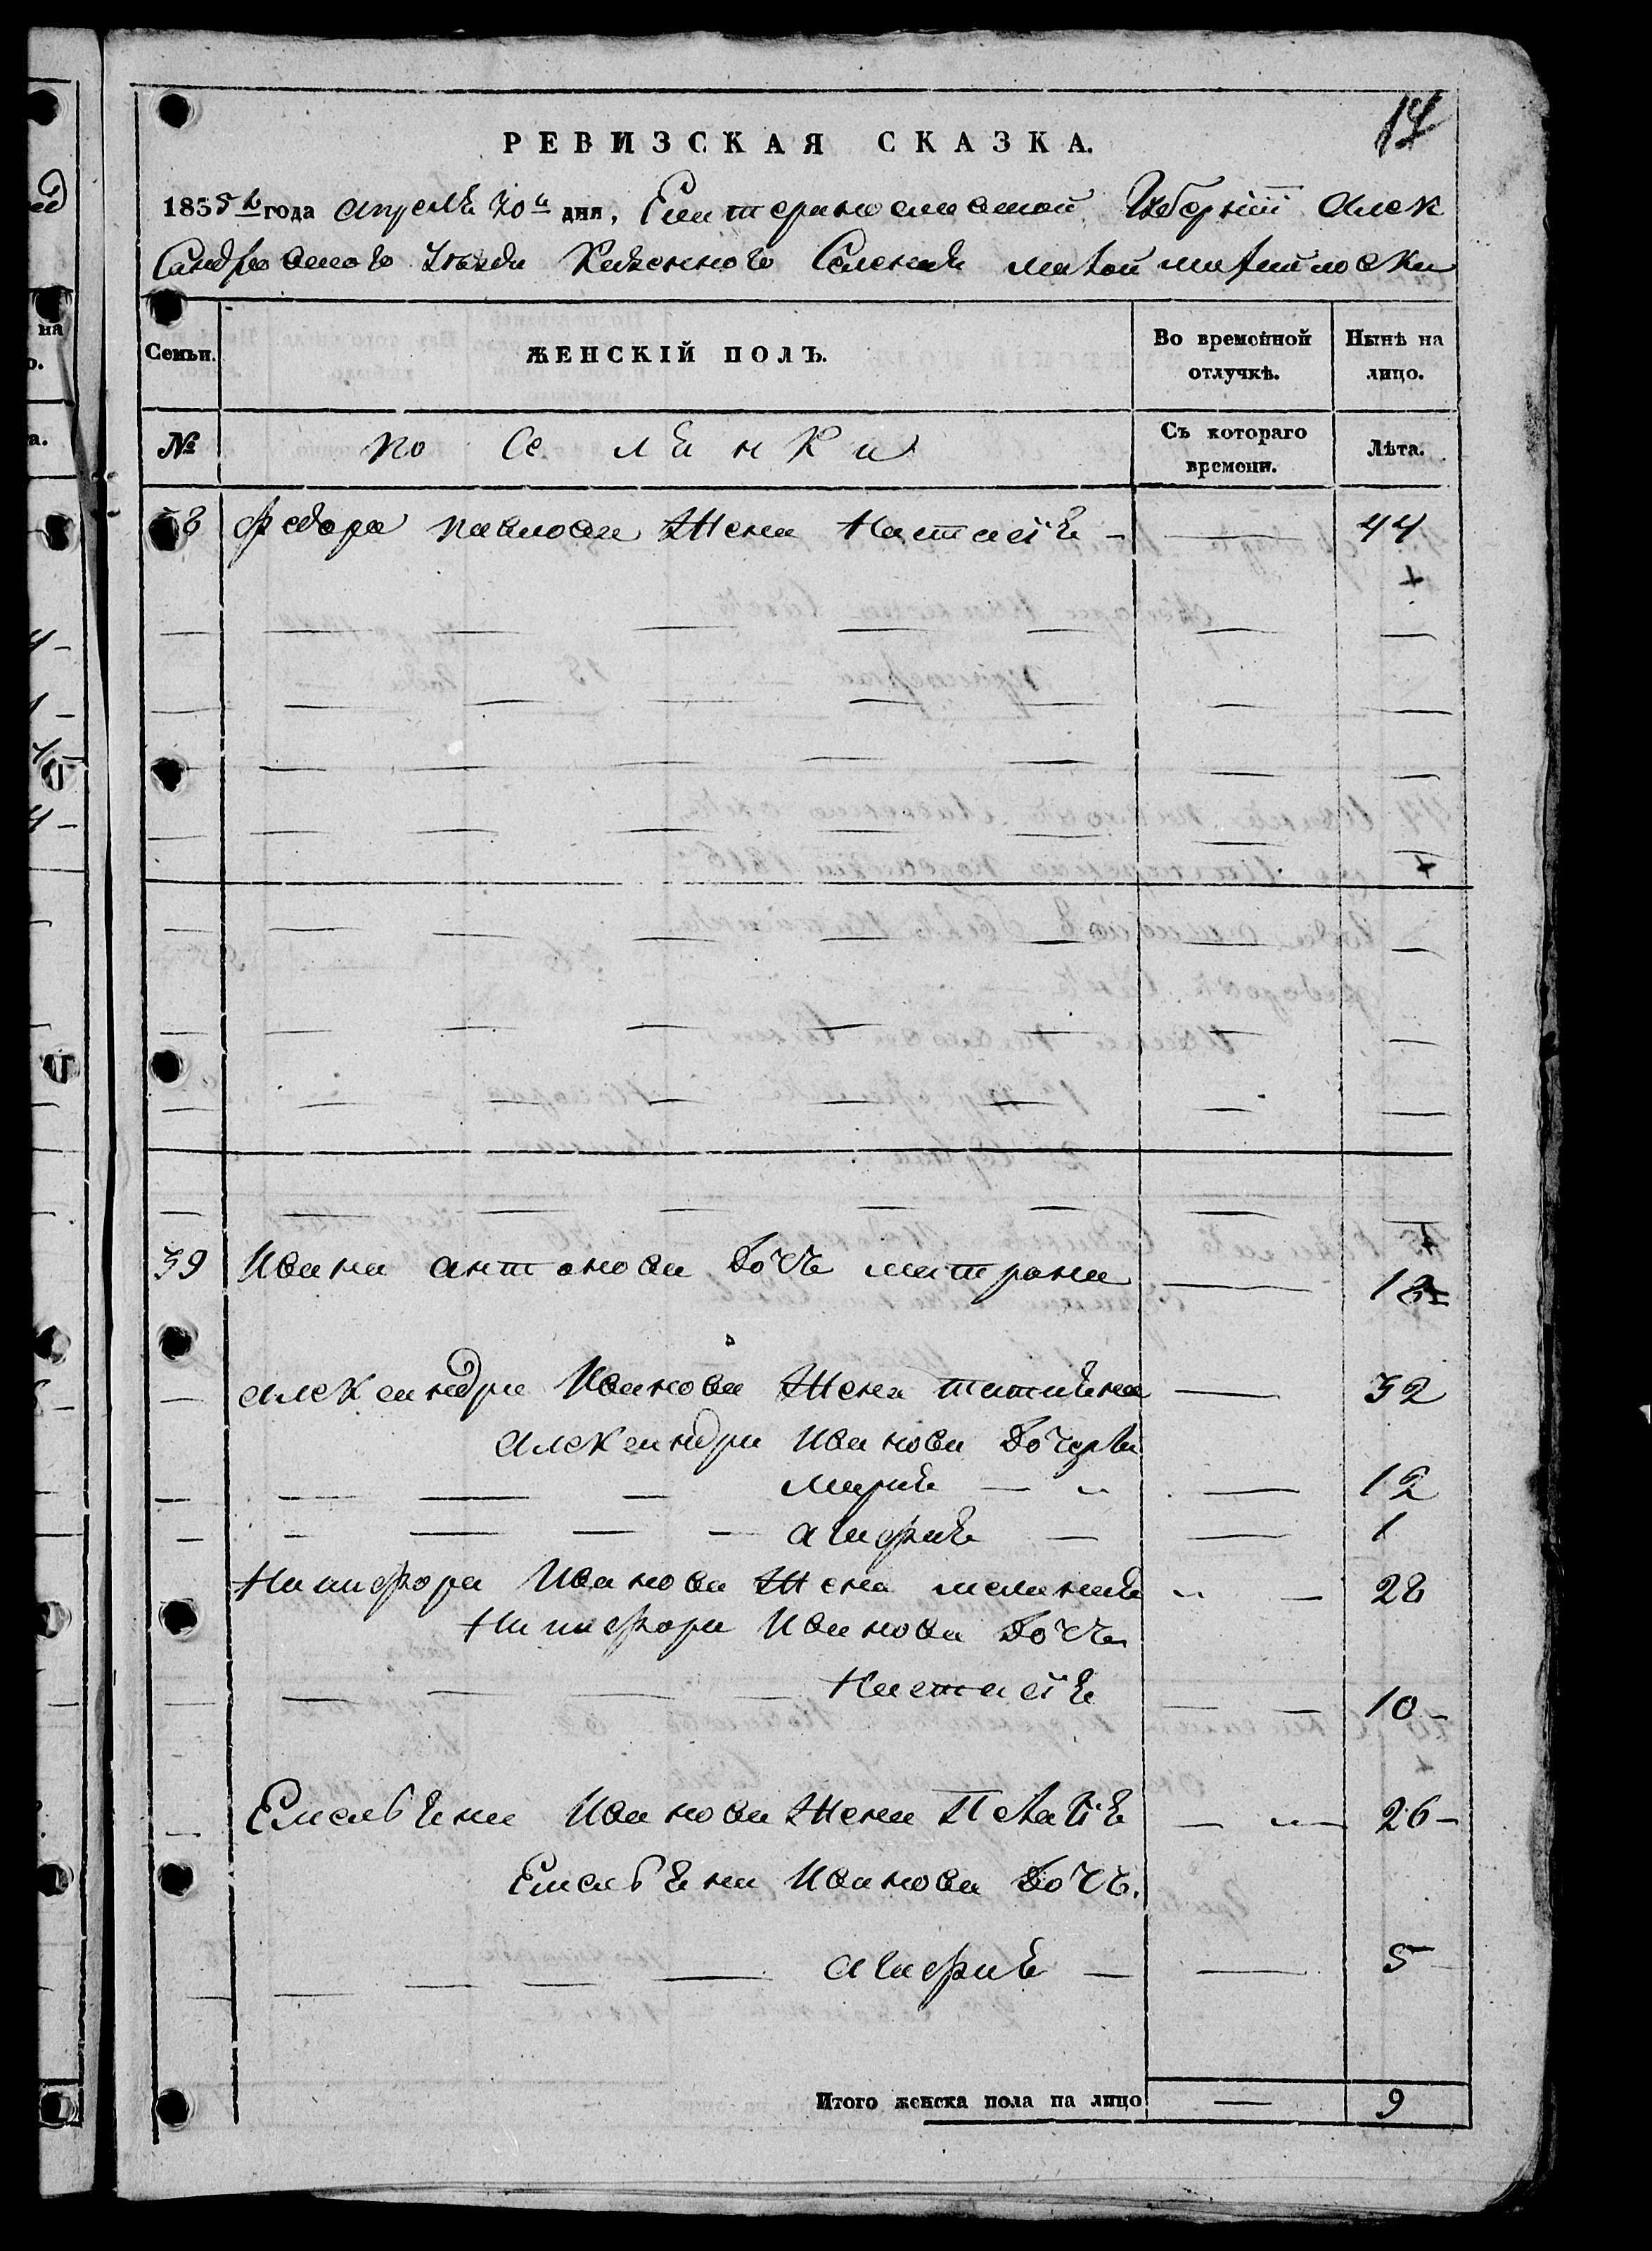 14
РЕВИЗСКАЯ СКАЗКА.
1835го года апрелѣ 20го дня, Екатеринославской Губернiи Алек
сандровскаго Уезда Казеннаго Селенiя малой михайловки
Семьи.
ЖЕНСКІЙ ПОЛЪ.
Во временной отлучкѣ.
Нынѣ на лицо.
№
по се ля н к и
Съ котораго времени.
Лѣта.
8 федора павлова Жена Настасiя — 44
39 Ивана антонова Дочь матрона — 18
александра Иванова Жена татияна — 32
александра Иванова Дочери
мария — 12
агафия — 1
Никифора Иванова Жена мелания — 28
Никифора Иванова Дочь
Настасiя — 10
Емельяна Иванова Жена Пелагiя — 26
Емельяна Иванова Дочь.
агафия — 5
Итого женска пола на лицо — 9